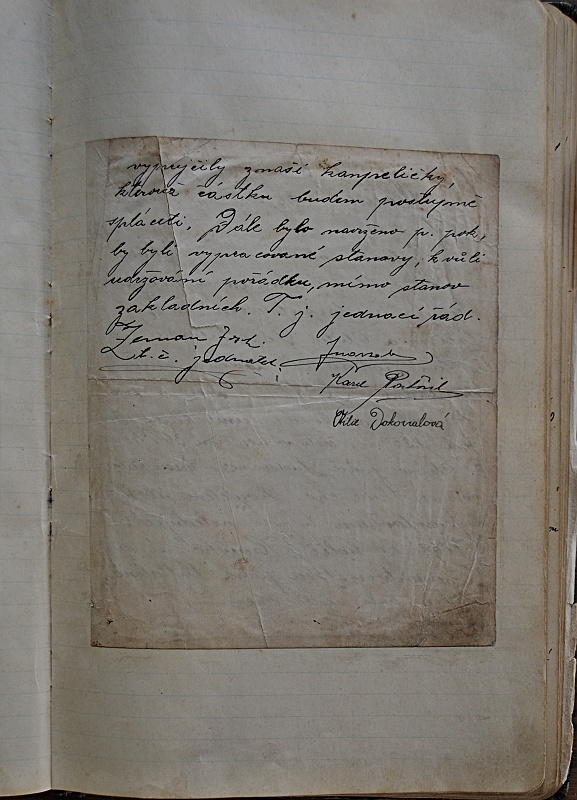 vypujčily z naší kampeličky,
kterouž částku budem postupmě
spláceti, Dále bylo navrženo p. pok,
by byli vypracované stanovy, k vůli
udržování pořádku, mimo stanov
zakladních. T. j. jednací řád.
Zeman Jos.
t. č. jednatel.
Karel
Dokoualová